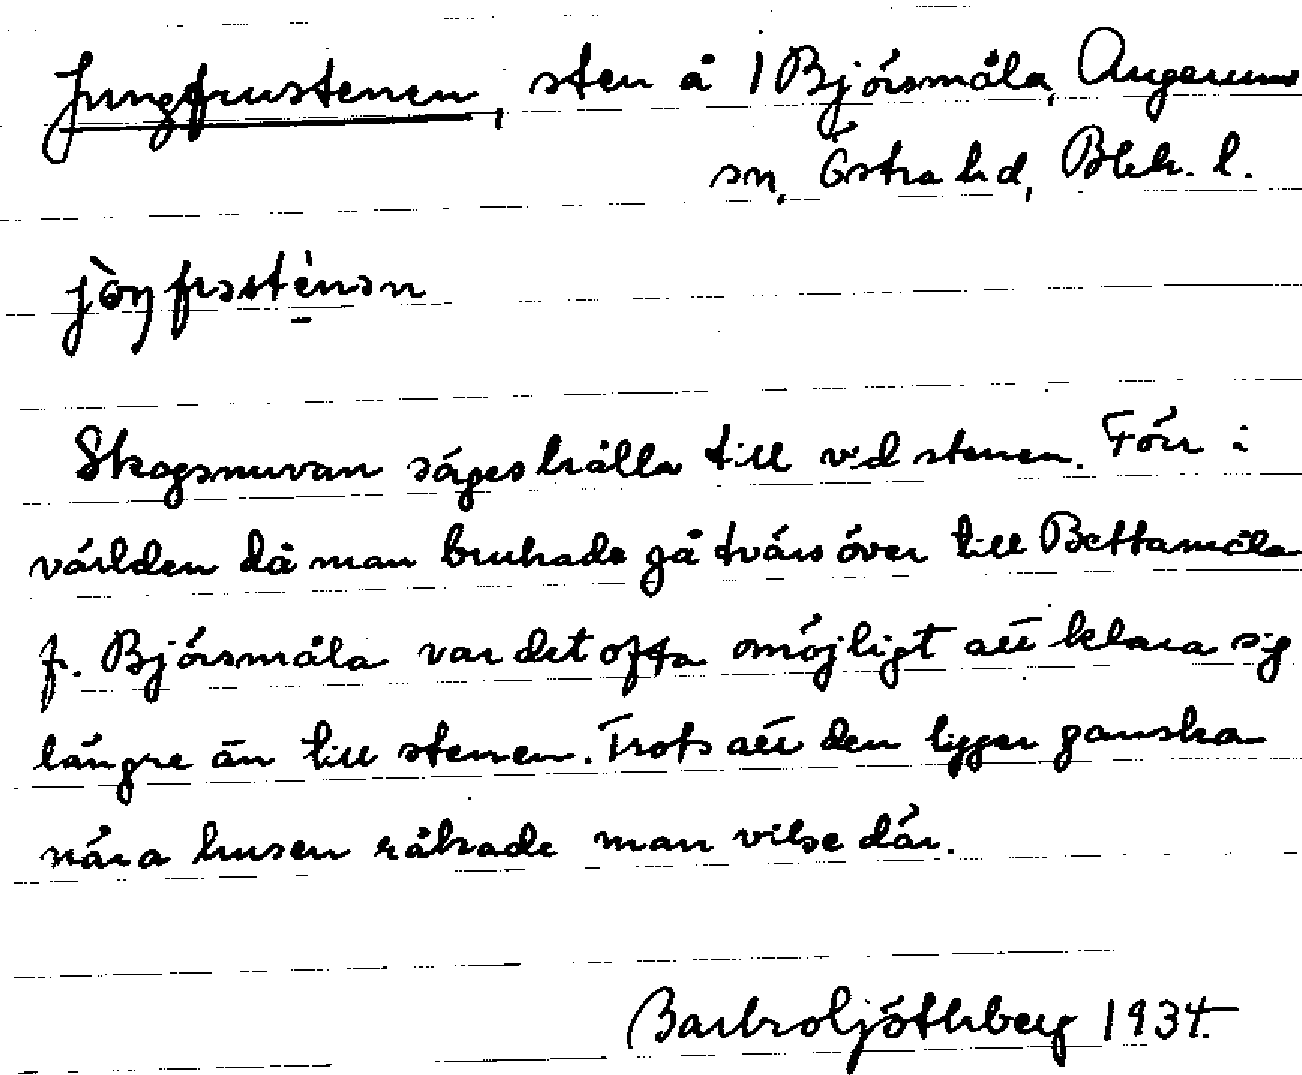 Jungfrustenen, sten å 1 Björsmåla, Augerums
sn, Östra hd, Blek. l.
Skogsnuvan säges hålla till vid stenen. Förr i
världen då man brukade gå tvärs över till Bettamåla
fr. Björsmåla var det ofta omöjligt att klara sig
längre än till stenen. Trots att den ligger ganska
nära husen råkade man vilse där.
Barbro Ljöthberg 1934.